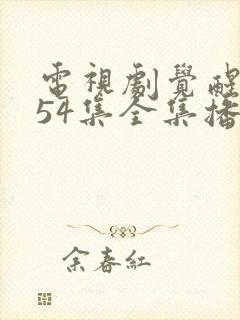 電視劇覺醒
54集全集播
余春紅